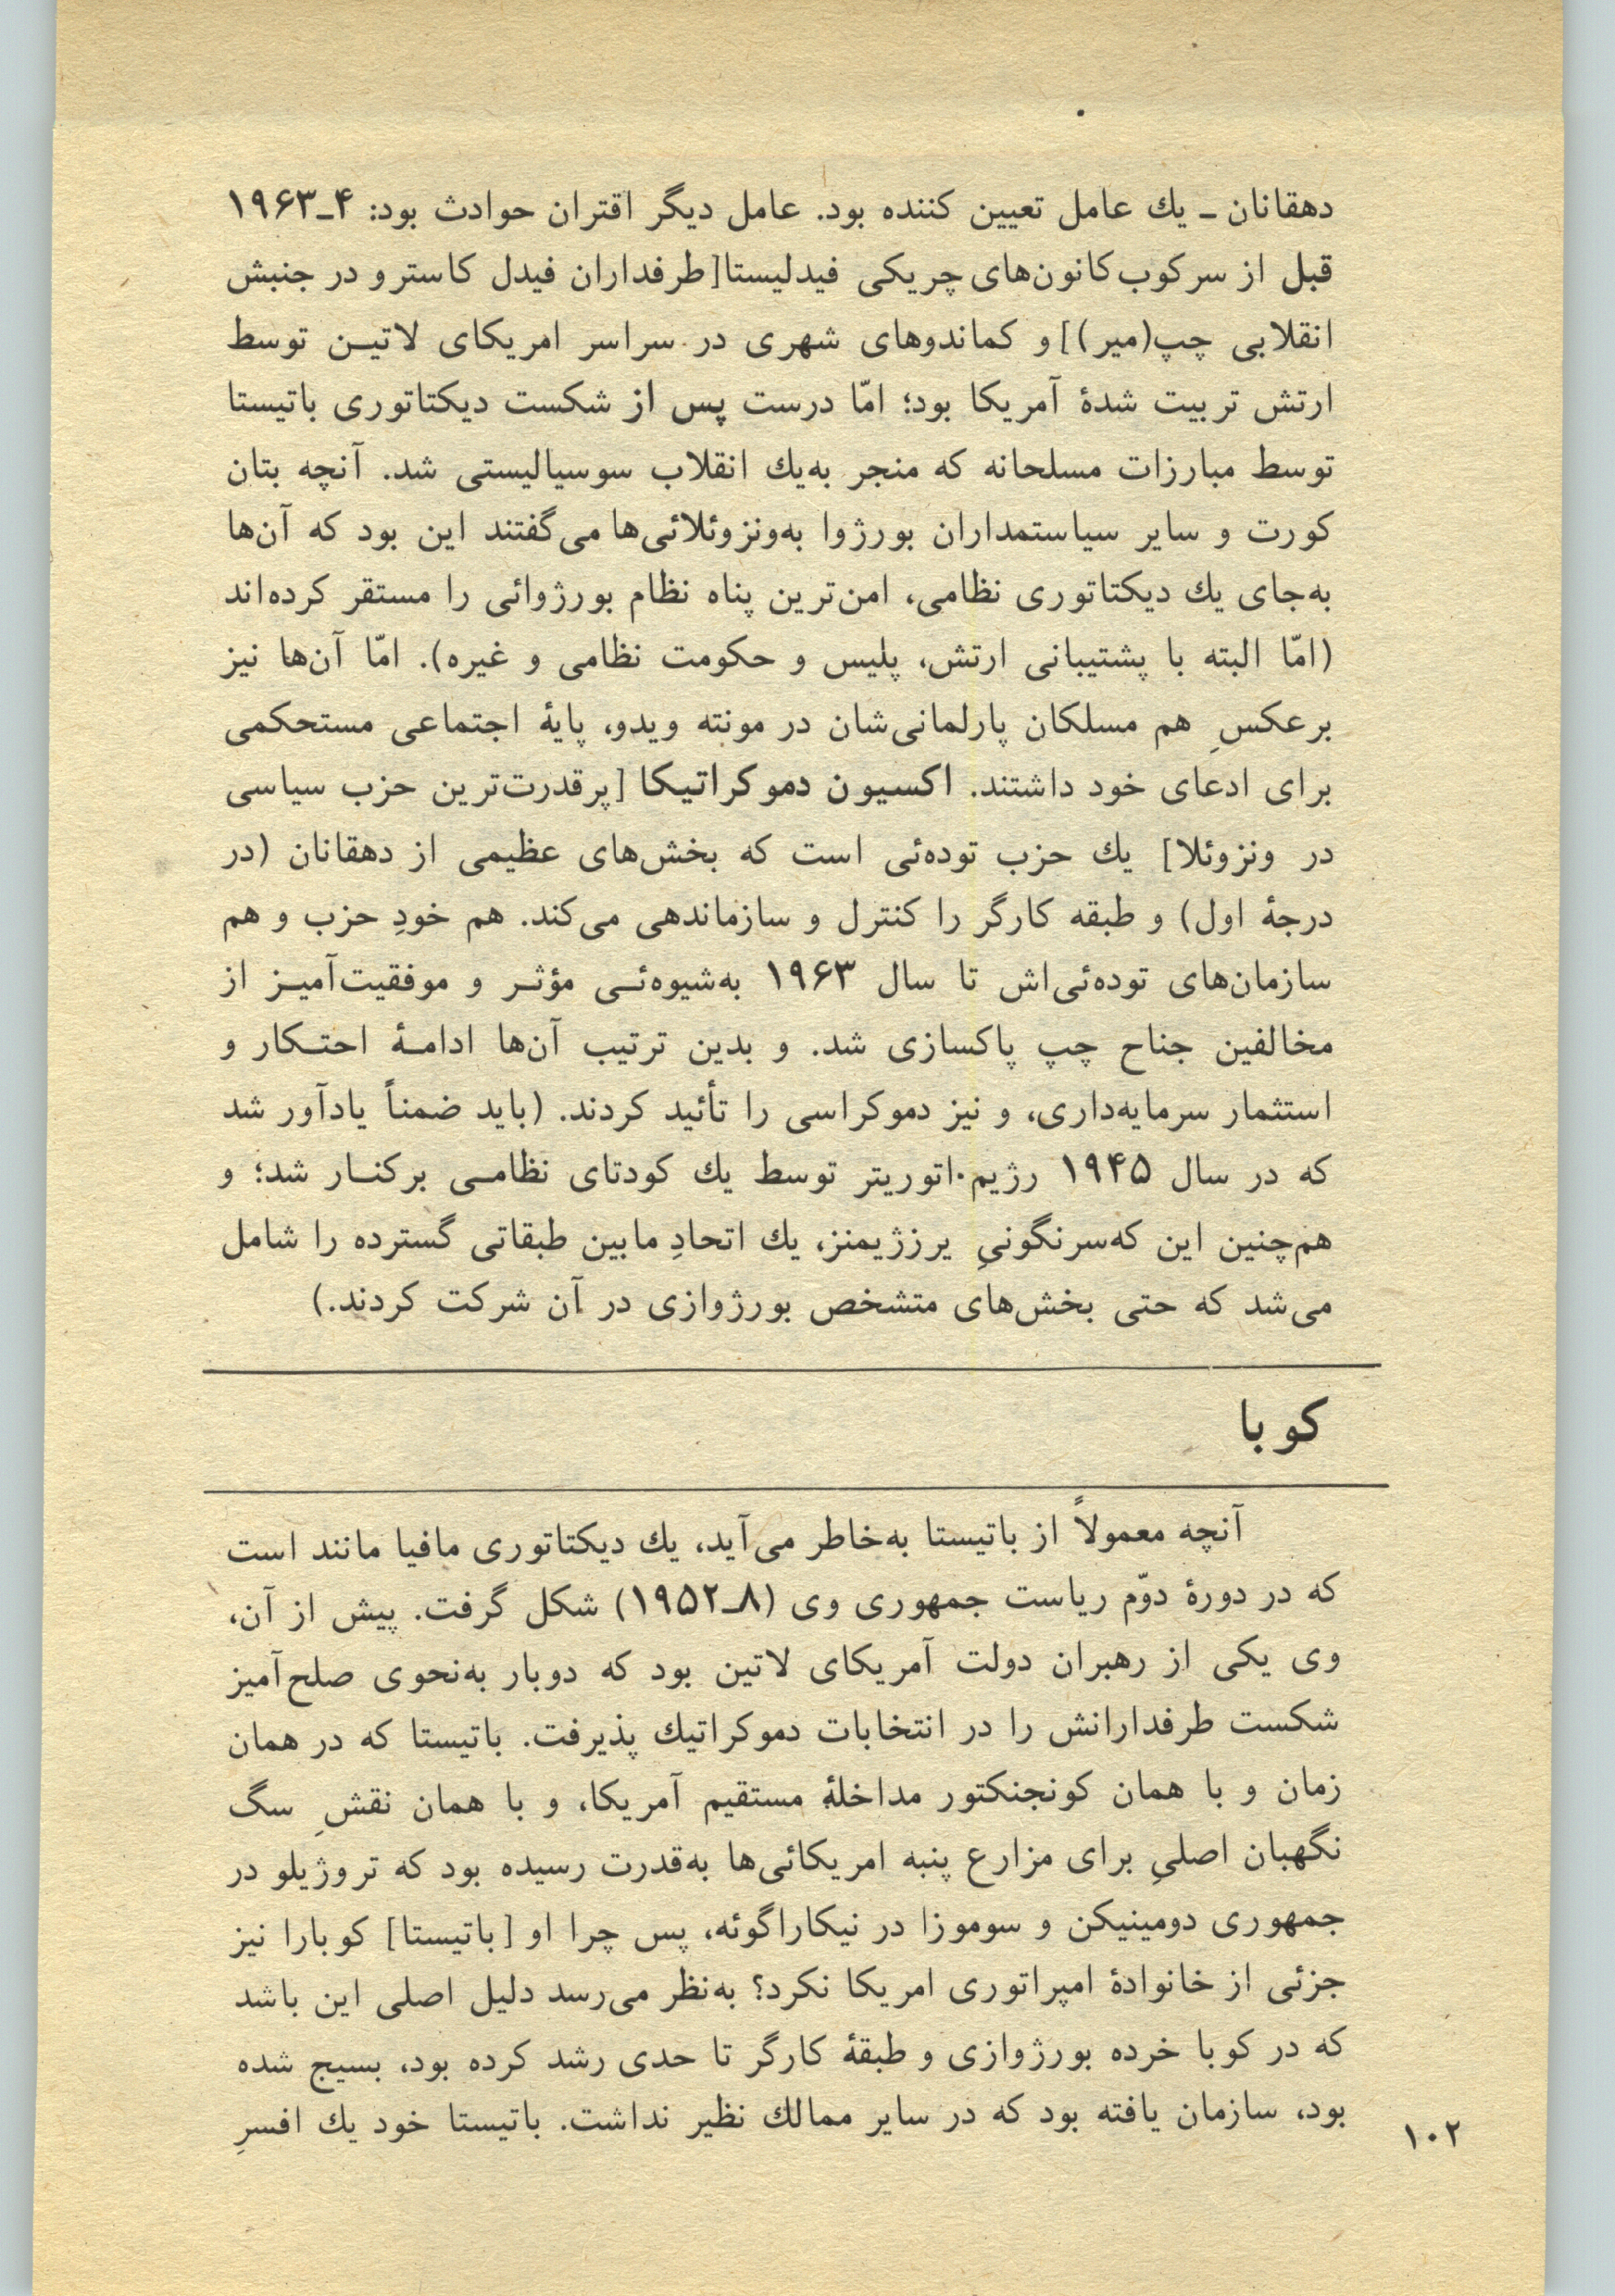 دهقانان ـ یك عامل تعیین کننده بود. عامل دیگر اقتران حوادث بود: ۴ـ۱۹۶۳
قبل از سرکوب کانون‌های چریکی فیدلیستا[طرفداران فیدل کاسترو در جنبش
انقلابی چپ(میر)] و کماندوهای شهری در سراسر امریکای لاتیـن توسط
ارتش تربیت شدهٔ آمریکا بود؛ امّا درست پس از شکست دیکتاتوری باتیستا
توسط مبارزات مسلحانه که منجر به‌یك انقلاب سوسیالیستی شد. آنچه بتان
کورت و سایر سیاستمداران بورژوا به‌ونزوئلائی‌ها می‌گفتند این بود که آن‌ها
به‌جای یك دیکتاتوری نظامی، امن‌ترین پناه نظام بورژوائی را مستقر کرده‌اند
(امّا البته با پشتیبانی ارتش، پلیس و حکومت نظامی و غیره). امّا آن‌ها نیز
برعکسِ هم مسلکان پارلمانی‌شان در مونته ویدو، پایهٔ اجتماعی مستحکمی
برای ادعای خود داشتند. اکسیون دموکراتیکا [پرقدرت‌ترین حزب سیاسی
در ونزوئلا] یك حزب توده‌ئی است که بخش‌های عظیمی از دهقانان (در
درجهٔ اول) و طبقه کارگر را کنترل و سازماندهی می‌کند. هم خودِ حزب و هم
سازمان‌های توده‌ئی‌اش تا سال ۱۹۶۳ به‌شیوه‌ئـی مؤثـر و موفقیت‌آمیـز از
مخالفین جناح چپ پاکسازی شد. و بدین ترتیب آن‌ها ادامـهٔ احتـکار و
استثمار سرمایه‌داری، و نیز دموکراسی را تأئید کردند. (باید ضمناً یادآور شد
که در سال ۱۹۴۵ رژیم اتوریتر توسط یك کودتای نظامـی برکنـار شد؛ و
هم‌چنین این که‌سرنگونیِ یرزژیمنز، یك اتحادِ مابین طبقاتی گسترده را شامل
می‌شد که حتی بخش‌های متشخص بورژوازی در آن شرکت کردند.)
کوبا
آنچه معمولاً از باتیستا به‌خاطر می‌آید، یك دیکتاتوری مافیا مانند است
که در دورهٔ دوّم ریاست جمهوری وی (۸ـ۱۹۵۲) شکل گرفت. پیش از آن،
وی یکی از رهبران دولت آمریکای لاتین بود که دوبار به‌نحوی صلح‌آمیز
شکست طرفدارانش را در انتخابات دموکراتیك پذیرفت. باتیستا که در همان
زمان و با همان کونجنکتور مداخلهٔ مستقیم آمریکا، و با همان نقشِ سگ
نگهبان اصلیِ برای مزارع پنبه امریکائی‌ها به‌قدرت رسیده بود که تروژیلو در
جمهوری دومینیکن و سوموزا در نیکاراگوئه، پس چرا او [باتیستا] کوبارا نیز
جزئی از خانوادهٔ امپراتوری امریکا نکرد؟ به‌نظر می‌رسد دلیل اصلی این باشد
که در کوبا خرده بورژوازی و طبقهٔ کارگر تا حدی رشد کرده بود، بسیج شده
بود، سازمان یافته بود که در سایر ممالك نظیر نداشت. باتیستا خود یك افسرِ
۱۰۲